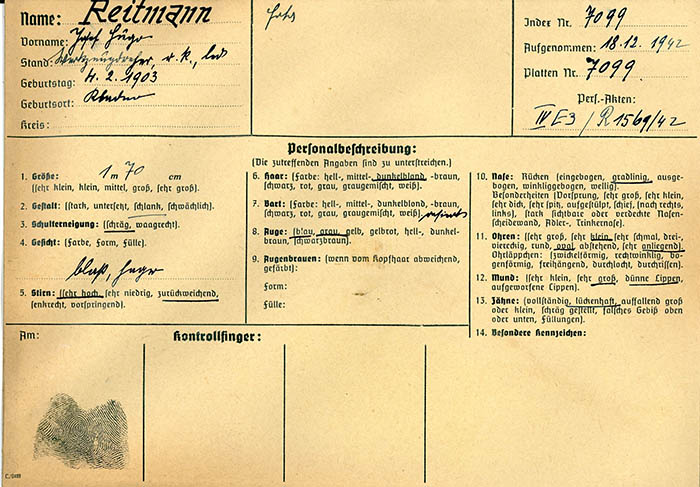 Name: Reitmann
Vorname: Josef Hugo
Stand: r. k., led
Geburtstag: 4. 2. 1903
Geburtsort:
Kreis:
Index Nr. 7099
Aufgenommen: 18.12. 1942
Platten Nr. 7099
Pers.-Akten:
IV E3 / R 1569/42
Personalbeschreibung:
(Die zutreffenden Angaben sind zu unterstreichen.)
1. Größe: 1 m 70 cm
(sehr klein, klein, mittel, groß, sehr groß).
2. Gestalt: (stark, untersetzt, schlank, schwächlich).
3. Schulterneigung: (schräg, waagrecht).
4. Gesicht: (Farbe, Form, Fülle).
blaß, hager
5. Stirn: (sehr hoch, sehr niedrig, zurückweichend,
senkrecht, vorspringend).
6. Haar: (Farbe: hell-, mittel-, dunkelblond, -braun,
schwarz, rot, grau, graugemischt, weiß).
7. Bart: (Farbe: hell-, mittel-, dunkelblond, -braun,
schwarz, rot, grau, graugemischt, weiß) rasiert
8. Auge: (blau, grau, gelb, gelbrot, hell-, dunkel-
braun, schwarzbraun).
9. Augenbrauen: (wenn vom Kopfhaar abweichend,
gefärbt):
Form:
Fülle:
10. Nase: Rücken (eingebogen, gradlinig, ausge-
bogen, winkliggebogen, wellig).
Besonderheiten (Vorsprung, sehr groß, sehr klein,
sehr dick, sehr spitz, aufgestülpt, schief, (nach rechts,
links), stark sichtbare oder verdeckte Nasen-
scheidewand, Adler-, Trinkernase).
11. Ohren: (sehr groß, sehr klein, sehr schmal, drei-,
viereckig, rund, oval, abstehend, sehr anliegend).
Ohrläppchen: (zwickelförmig, rechtwinklig, bo-
genförmig, freihängend, durchlocht, durchrissen).
12. Mund: (sehr klein, sehr groß, dünne Lippen,
aufgeworfene Lippen).
13. Zähne: (vollständig, lückenhaft, auffallend groß
oder klein, schräg gestellt, falsches Gebiß oben
oder unten, Füllungen).
14. Besondere Kennzeichen:
Am:
Kontrollfinger: